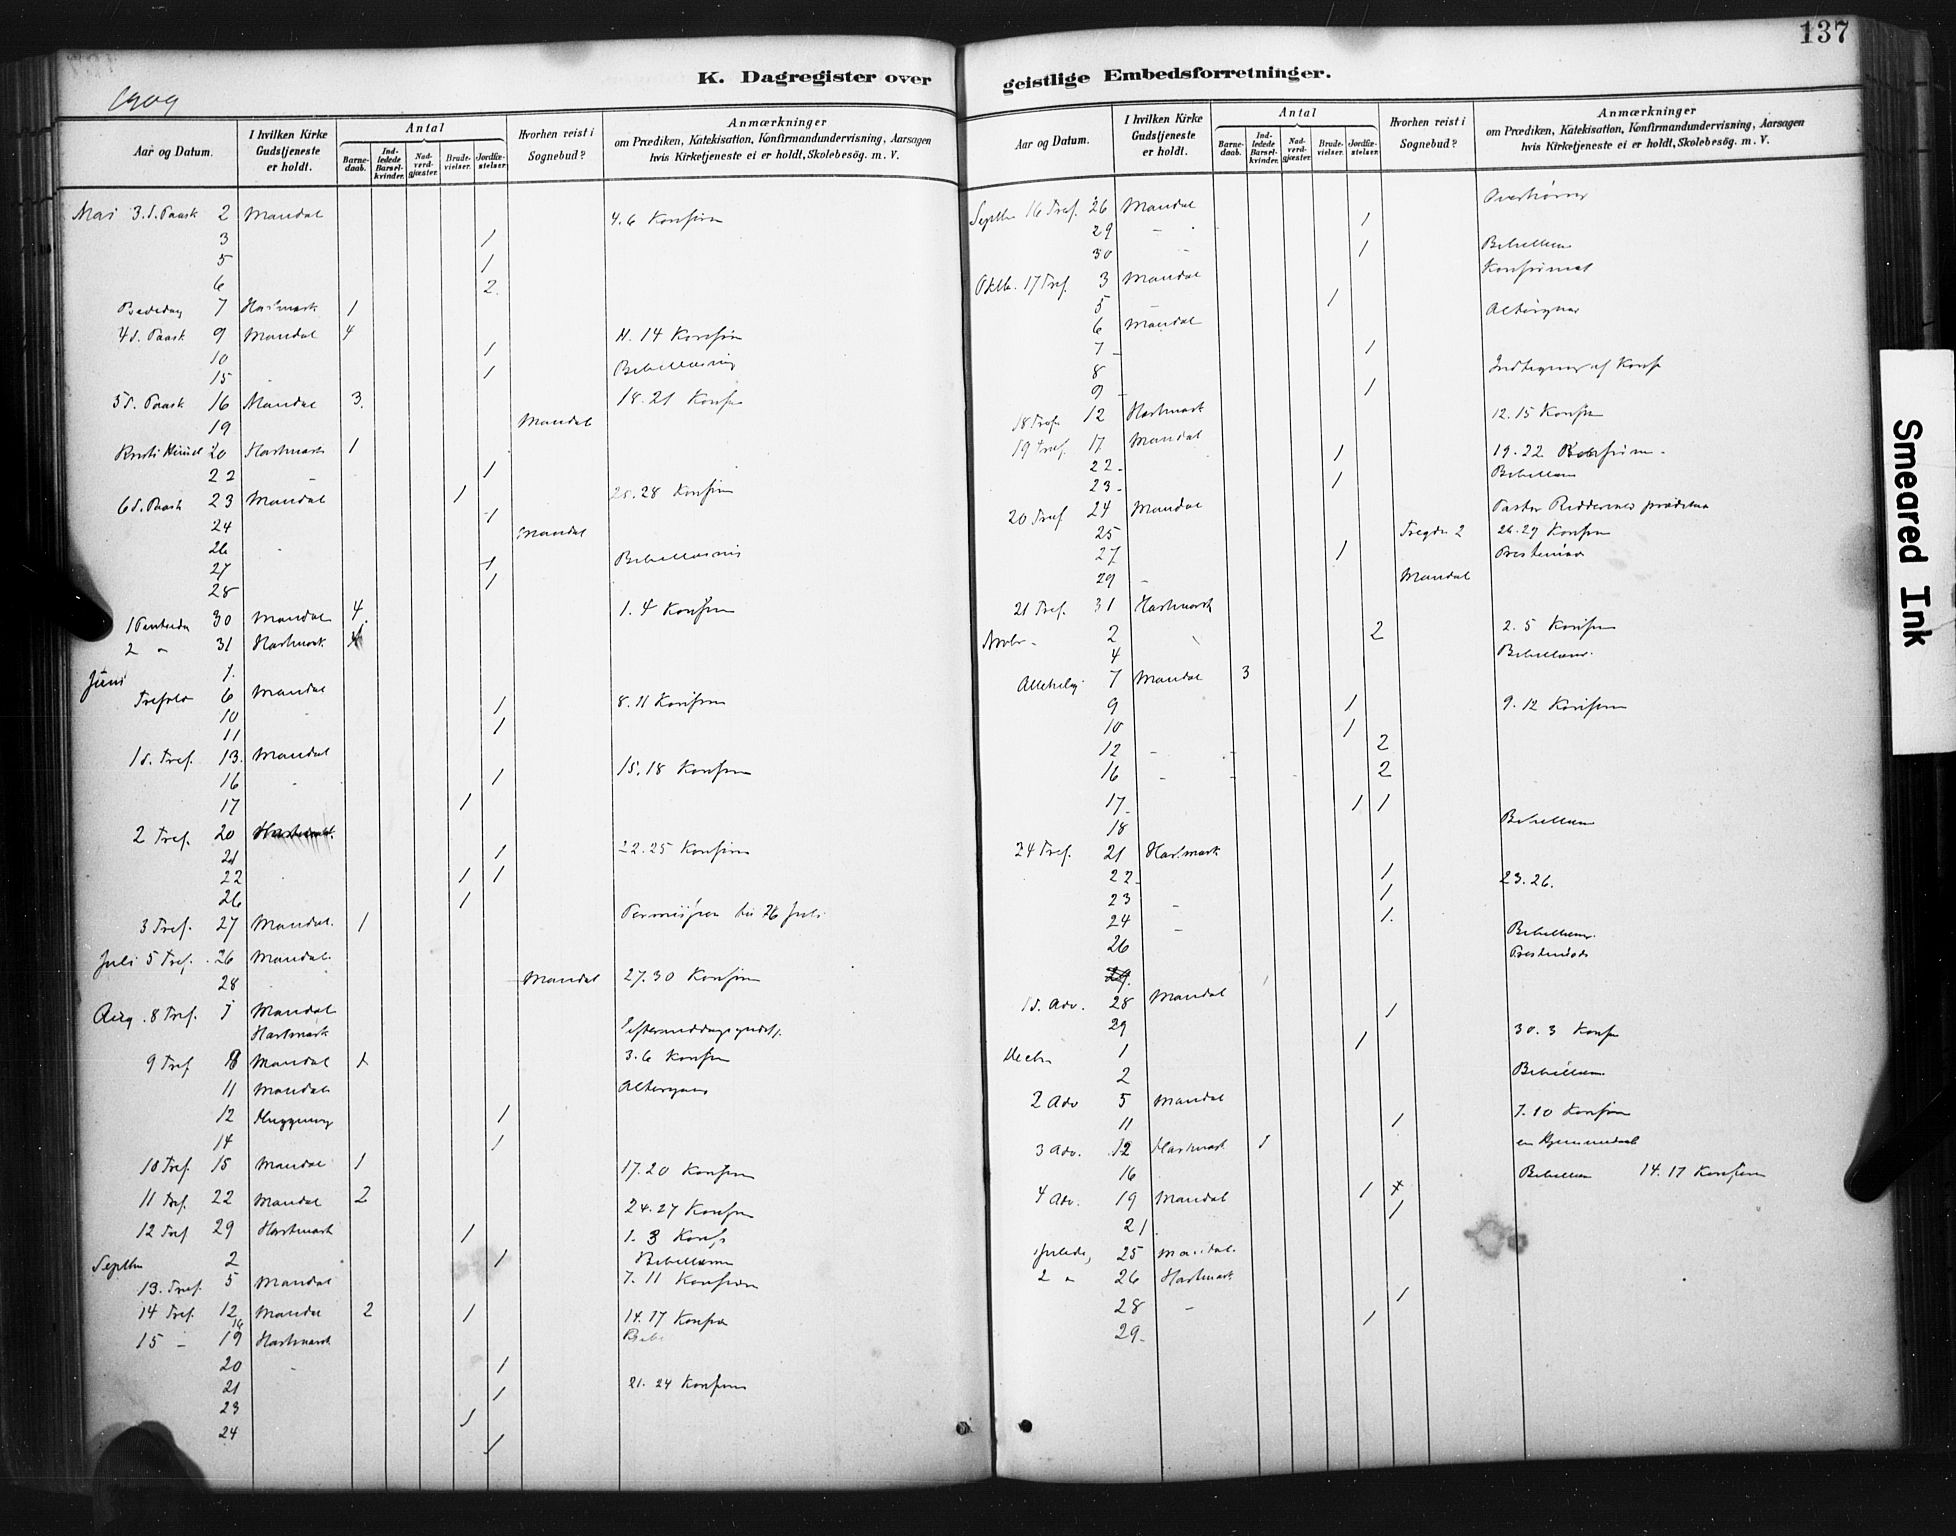 137
K. Dagregister over geistlige Embedsforretninger.
1909
Aar og Datum.
I hvilken Kirke Gudstjeneste er holdt.
Antal
Barnedaab.
Indledede Barselkvinder.
Nadverdgjæster.
Brudevielser.
Jordfæstelser.
Hvorhen reist i Sognebud?
Anmærkninger
om Prædiken, Katekisation, Konfirmandundervisning, Aarsagen
hvis Kirketjeneste ei er holdt, Skolebesøg. m. V.
Mai 3. S. Paask 2 Mandal 4.6 Konfirm
3 1
5 1
6 2
Bededag 7 Hartmark 1
4 S. Paask 9 Mandal 4 11.14 Konfirm
10 1
15 1 Bibellæsning
5 S. Paask 16 Mandal 3. 18.21 Konf
19 Mandal
Kristi Himmel 20 Hartmark 1
22 1
6 S. Paask 23 Mandal 1 25.28 Konfirm
24 1
26 Mandal
27 1 Bibellæsning
28 1
30 Mandal 4 1.4 Konfirm
2 " 31 Hartmark
Juni 1.
6 Mandal 8.11 Konfirm
10 1
11 1
1 S. Tref. 13. Mandal 15.18 Konfirm
16 1
17 1
2 Tref. 20 Hartmark
21 1 22.25 Konfirm
22 1 1
26 1
3 Tref. 27 Mandal. 1 til 26 Juli
Juli 5 Tref. 26 Mandal
28 Mandal 27.30 Konfirm
Aug. 8 Tref. 1 Mandal
Hartmark
9 Tref 8 Mandal 1 3.6 Konfirm
11 Mandal Altergang
12 1
14 1
10 Tref. 15 Mandal 1 17.20 Konfirm
11 Tref. 22 Mandal 2 24.27 Konfirm
12 Tref 29 Hartmark 1 1.3 Konf
Septbr 2 1 Bibellæsn
13. Tref. 5 Mandal 7.11 Konfirm
14 Tref. 12 Mandal 2 1 14.17 Konfirm
15 – 19 Hartmark Bibe
20 1
21 1 21.24 Konfirm
23 1
24 1
Aar og Datum.
I hvilken Kirke Gudstjeneste er holdt.
Antal
Barnedaab.
Indledede Barselkvinder.
Nadverdgjæster.
Brudevielser.
Jordfæstelser.
Hvorhen reist i Sognebud?
Anmærkninger
om Prædiken, Katekisation, Konfirmandundervisning, Aarsagen
hvis Kirketjeneste ei er holdt, Skolebesøg. m. V.
Septbr 16 Tref. 26 Mandal
29 – 1
30 – 1 Bibellæsn
Oktb. 17 Tref. 3 Mandal Konfirmat
5 – 1
6 Mandal Altergang
7 – 1
8 af Konf
9 – 1
18 Tref 12 Hartmark 12.15 Konfirm
19 Tref. 17 Mandal 19.22 Konfirm
22 – 1
23 – 1 Bibellæsn
20 Tref 24 Mandal Pastor
25 Tregde 2 26.29 Konfirm
27 1
29 – Mandal
21 Tref. 31 Hartmark
Novbr 2 2 2.5 Konfirm
4 Bibellæsn.
Allehelg. 7 Mandal 3
9 1 9.12 Konfirm
10 1
12 – 2
16 – 2
17 – 1 1
18 Bibellæsn
24 Tref. 21 Hartmark
22 – 1 23.26.
23 – 1
24 – 1
26 Bibellæsn.
29
1 S. Adv. 28 Mandal
29 1 30.3 Konfirm
Decbr 1 1
2 Bibellæsn
2 Adv 5 Mandal 7.10 Konfirm
11 1
3 Adv. 12 Hartmark 1 en Hjemmedaab
16 Bibellæsn 14.17 Konfirm
4 Adv. 19 Mandal 1
21 1
Juledag 25 Mandal
2 " 26 Hartmark
28 – 1
29 – 1
Smeared Ink